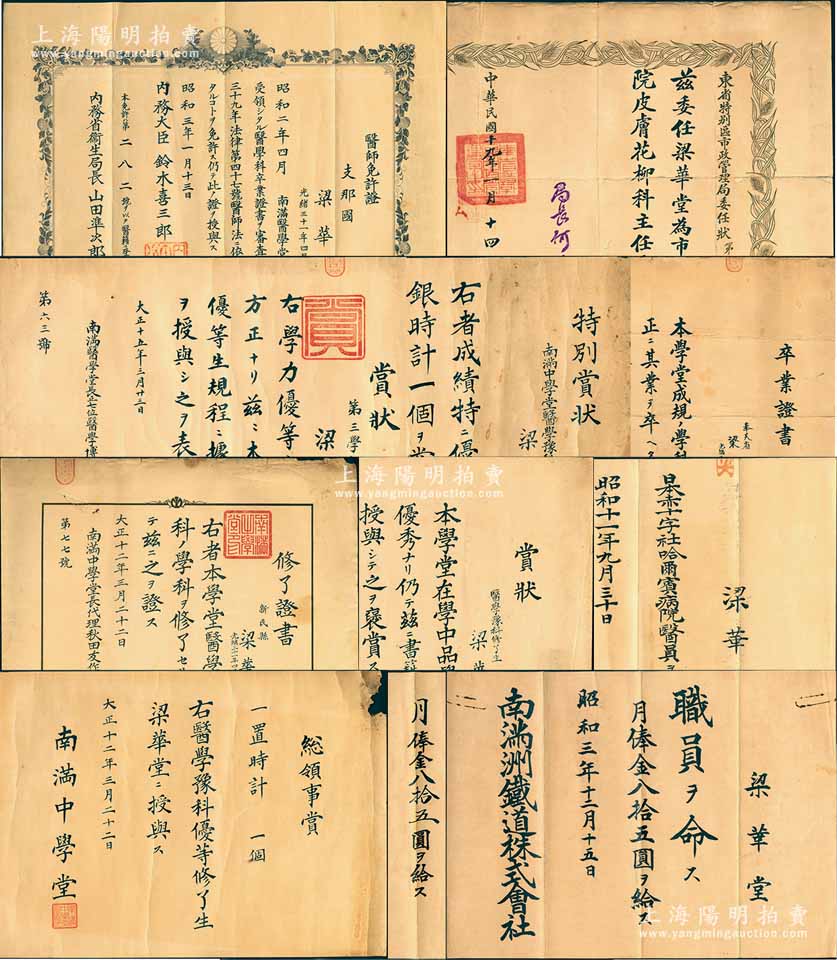 上海陽明拍賣
www.yangmingauction.com
醫師免許證
支那國
梁華
光緒三十一年四月
昭和二年四月 南滿醫學堂
受領シタル醫學科卒業證書ヲ審査
三十九年法律第四十七號醫師法ニ依
タルコトヲ免許ス仍テ此ノ證ヲ授與ス
昭和三年一月十三日
內務大臣 鈴木喜三郎
本免許ハ第二八二號ヲ以テ醫籍ニ登
內務省衞生局長 山田準次郎
東省特別區市政管理局委任狀
茲委任梁華堂為市
院皮膚花柳科主任
局長何
中華民國十九年一月十四
卒業證書
奉天省
梁
本學堂成規ノ學科
正ニ其業ヲ卒ヘタ
特別賞狀
南滿中學堂醫學豫
梁
右者成績特ニ優
銀時計一個ヲ賞
賞狀
第三學
梁
右學力優等
方正ナリ茲ニ本
優等生規程ニ據
ヲ授與シ之ヲ表
大正十五年三月廿二日
南滿醫學堂長正七位醫學博
第六三號
賞
修了證書
新民縣
梁華
右者本學堂醫學
科ノ學科ヲ修了セ
テ茲ニ之ヲ證ス
大正十二年三月二十二日
南滿中學堂長代理秋田友作
第七七號
賞狀
醫學豫科修了生
梁華
本學堂在學中品學
優秀ナリ仍テ茲ニ書籍
授與シテ之ヲ褒賞ス
梁華
日本赤十字社哈爾賓病院醫員ヲ
昭和十一年九月三十日
總領事賞
一置時計 一個
右醫學豫科優等修了生
梁華堂ニ授與ス
大正十二年三月二十二日
南滿中學堂
月俸金八拾五圓ヲ給ス
梁華堂
職員ヲ命ス
月俸金八拾五圓ヲ給ス
昭和三年十二月十五日
南滿洲鐵道株式會社
上海陽明拍賣
www.yangmingauction.com
上海陽明拍賣
www.yangmingauction.com